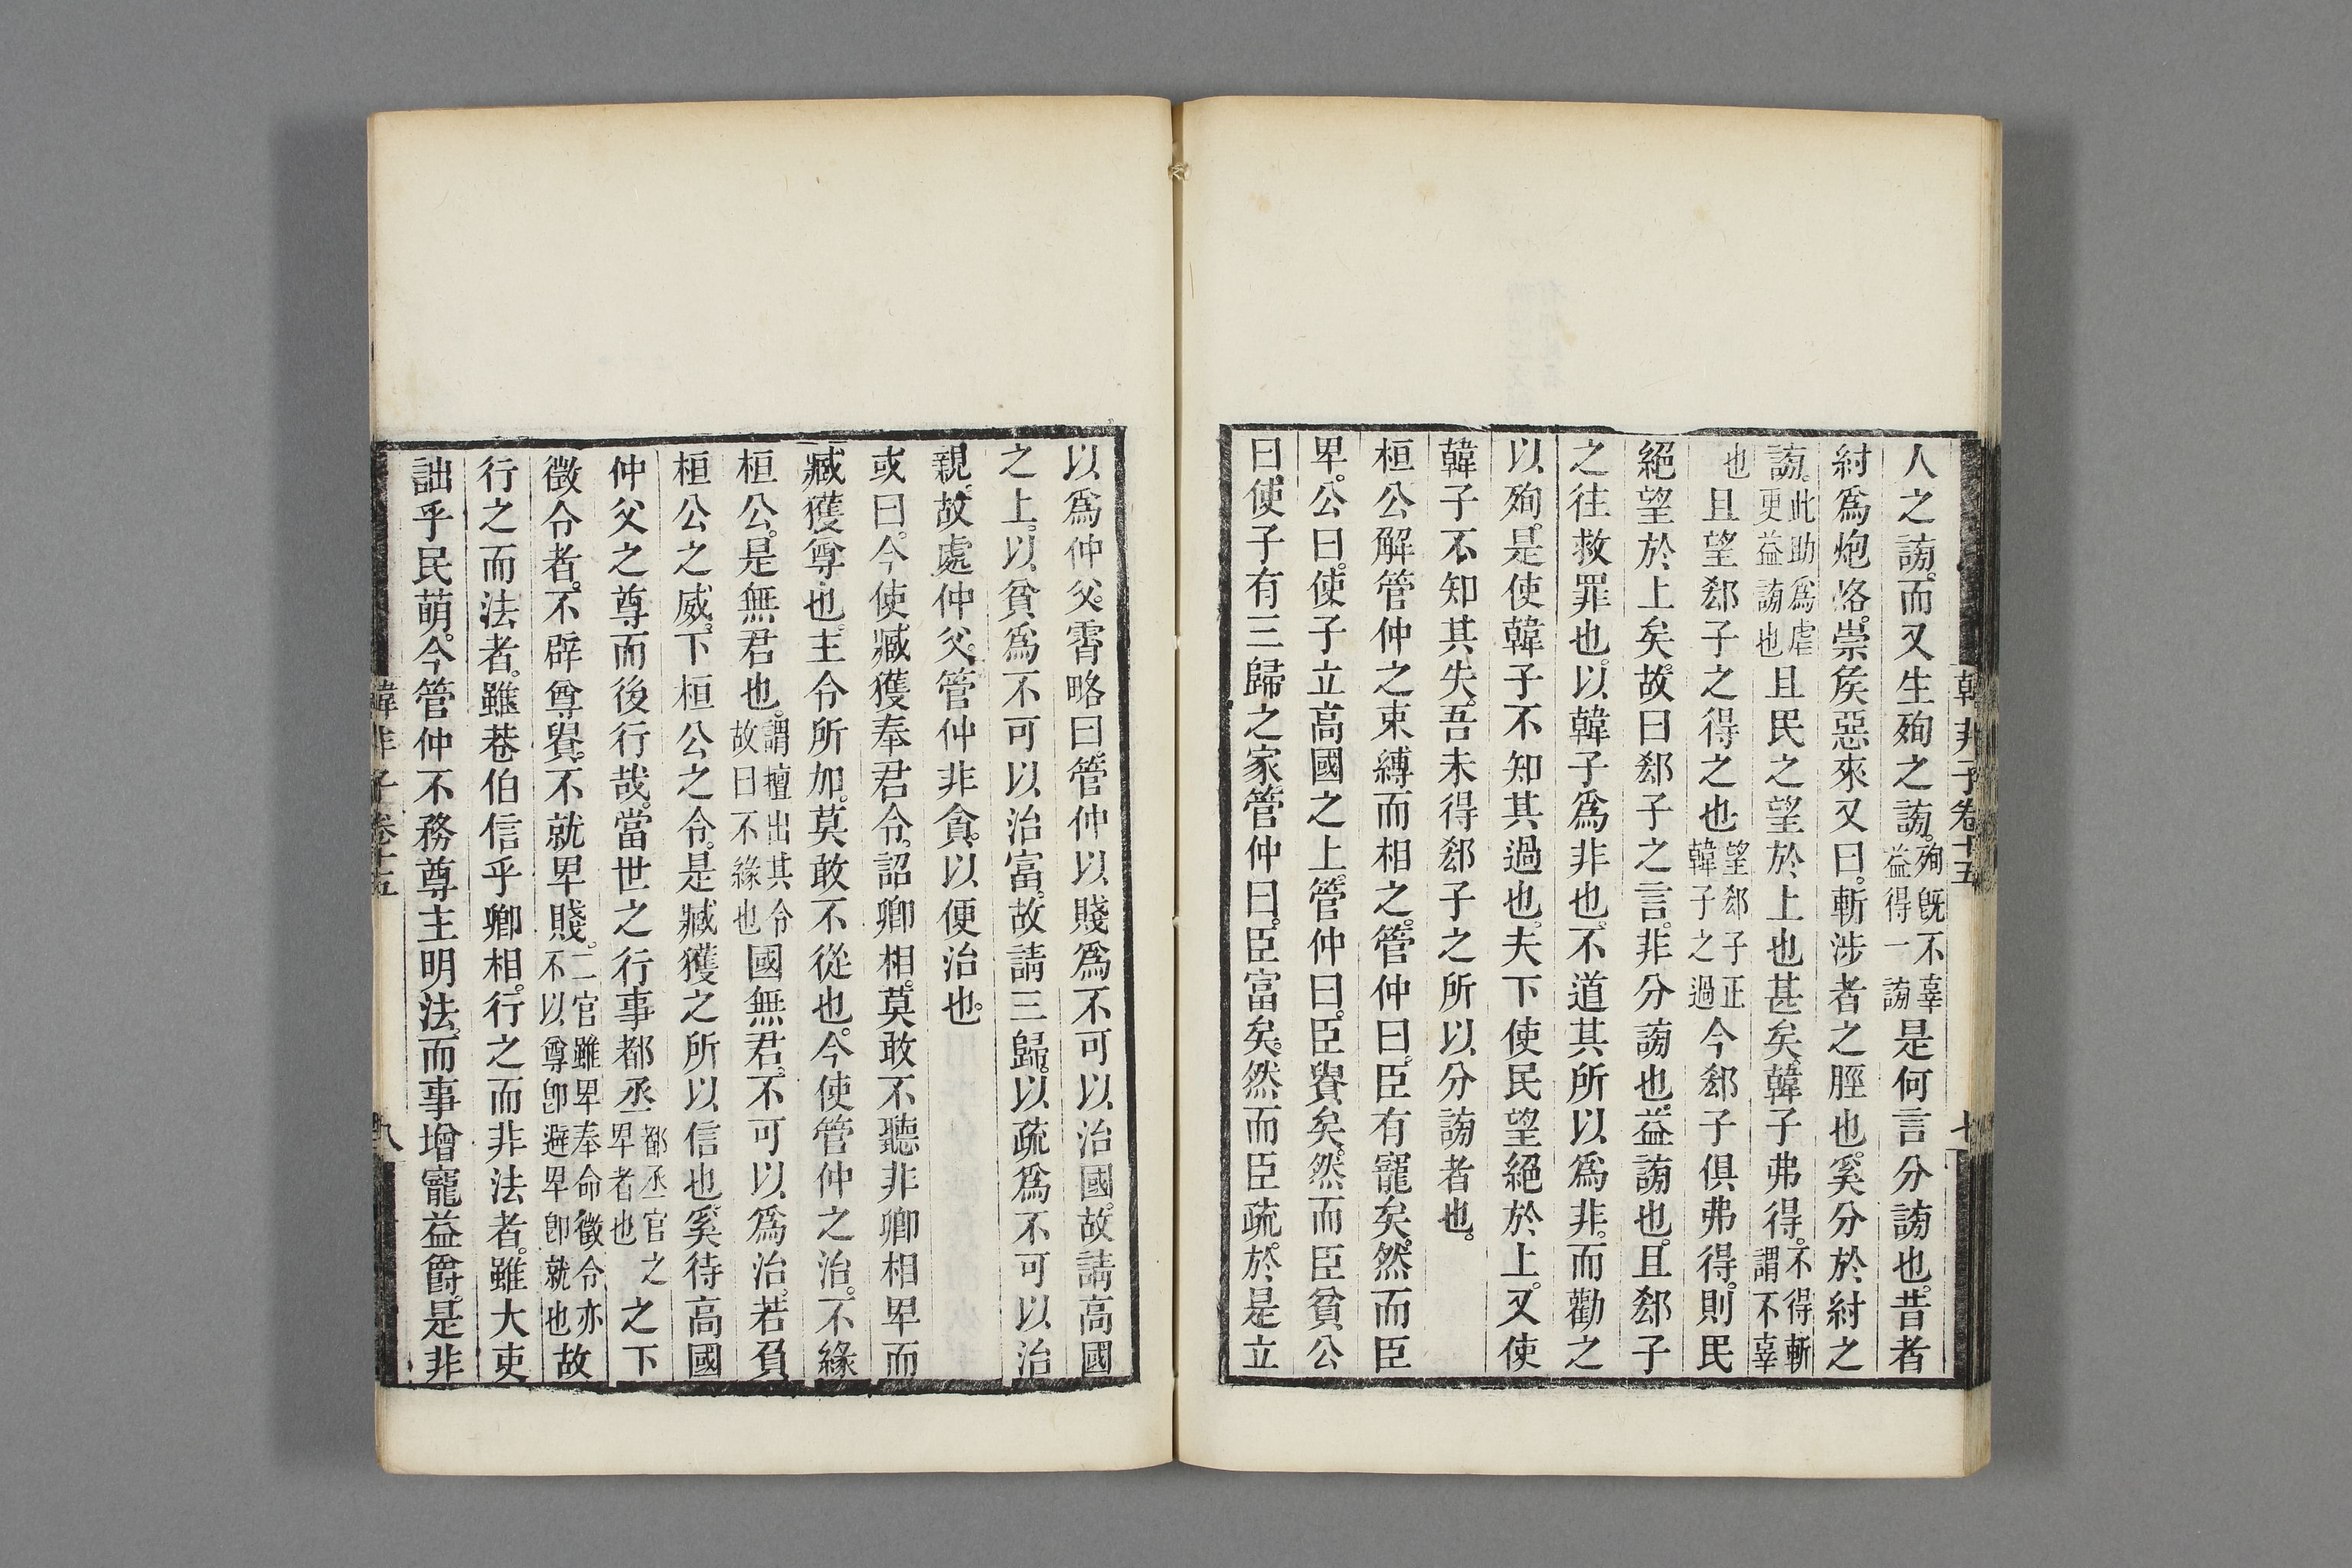 韓非子卷十五
七
人之謗。而又生殉之謗。殉既不辜益得一謗是何言分謗也。昔者
紂爲炮烙。崇矦惡來又曰。斬涉者之脛也。奚分於紂之
謗。此助爲虐更益謗也且民之望於上也甚矣。韓子弗得。不得斬謂不辜
也且望郄子之得之也望郄子正韓子之過今郄子俱弗得。則民
絕望於上矣。故曰郄子之言。非分謗也。益謗也。且郄子
之往救罪也。以韓子爲非也。不道其所以爲非。而勸之
以殉。是使韓子不知其過也。夫下使民望絕於上。又使
韓子不知其失。吾未得郄子之所以分謗者也。
桓公解管仲之束縛而相之。管仲曰。臣有寵矣。然而臣
卑。公曰。使子立高國之上。管仲曰。臣貴矣。然而臣貧。公
曰。使子有三歸之家。管仲曰。臣富矣。然而臣疏。於是立
以爲仲父。霄略曰。管仲以賤爲不可以治國。故請高國
之上。以貧爲不可以治富。故請三歸。以疏爲不可以治
親。故處仲父。管仲非貪。以便治也。
或曰。今使臧獲奉君令。詔卿相。莫敢不聽。非卿相卑而
臧獲尊也。主令所加。莫敢不從也。今使管仲之治。不緣
桓公。是無君也。謂擅出其令故曰不緣也國無君。不可以爲治。若負
桓公之威。下桓公之令。是臧獲之所以信也。奚待高國
仲父之尊而後行哉。當世之行事都丞都丞官之卑者也之下
徵令者。不辟尊貴。不就卑賤。二官雖卑奉命徵令亦不以尊卽避卑卽就也故
行之而法者。雖巷伯信乎卿相。行之而非法者。雖大吏
詘乎民萌。今管仲不務尊主明法。而事增寵益爵。是非
韓非子卷十五
八